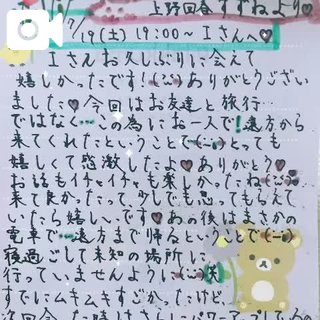 上野回春 すずねより♥
7/19(土) 19:00～ Iさんへ♥
Iさんお久しぶりに会えて
嬉しかったです!ありがとうござい
ました♥今回はお友達と旅行…
ではなく…この為にお一人で!遠方から
来てくれたということで とっても
嬉しくて感激したよ♥ありがとう♥
お話もイチャイチャも楽しかったね
来て良かったって少しでも思ってもらえて
いたら嬉しいです♥あの後はまさかの
電車で…遠方まで帰るということで
寝過ごして未知の場所に
行っていませんように(笑)
すでにムキムキすごかったけど、
次回会った時はさらにパワーアップして